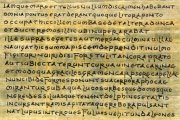 IAMQUE MARE ET TELLUS NULLUM DISCRIMEN HABEBANT
OMNIA PONTUS ERAT DEERANT QUOQUE LITORA PONTO
OCCUPAT HIC COLLEM CUMBA SEDET ALTER ADUNCA
ET DUCIT REMOS ILLIC UBI NUPER ARABAT
ILLE SUPRA SEGETES AUT MERSAE CULMINA VILLAE
NAVIGAT HIC SUMMA PISCEM DEPRENDIT IN ULMO
FIGITUR IN VIRIDI SI FORS TULIT ANCORA PRATO
AUT SUBIECTA TERUNT CURVAE VINETA CARINAE
ET MODO QUA GRACILES GRAMEN CARPSERE CAPELLAE
NUNC IBI DEFORMES PONUNT SUA CORPORA PHOCAE
MIRANTUR SUB AQUA LUCOS URBESQUE DOMOSQUE
NEREIDES SILVASQUE TENENT DELPHINES ET ALTIS
INCURSANT RAMIS AGITATAQUE ROBORA PULSANT
NAT LUPUS INTER OVES FULVOS VEHIT UNDA LEONES